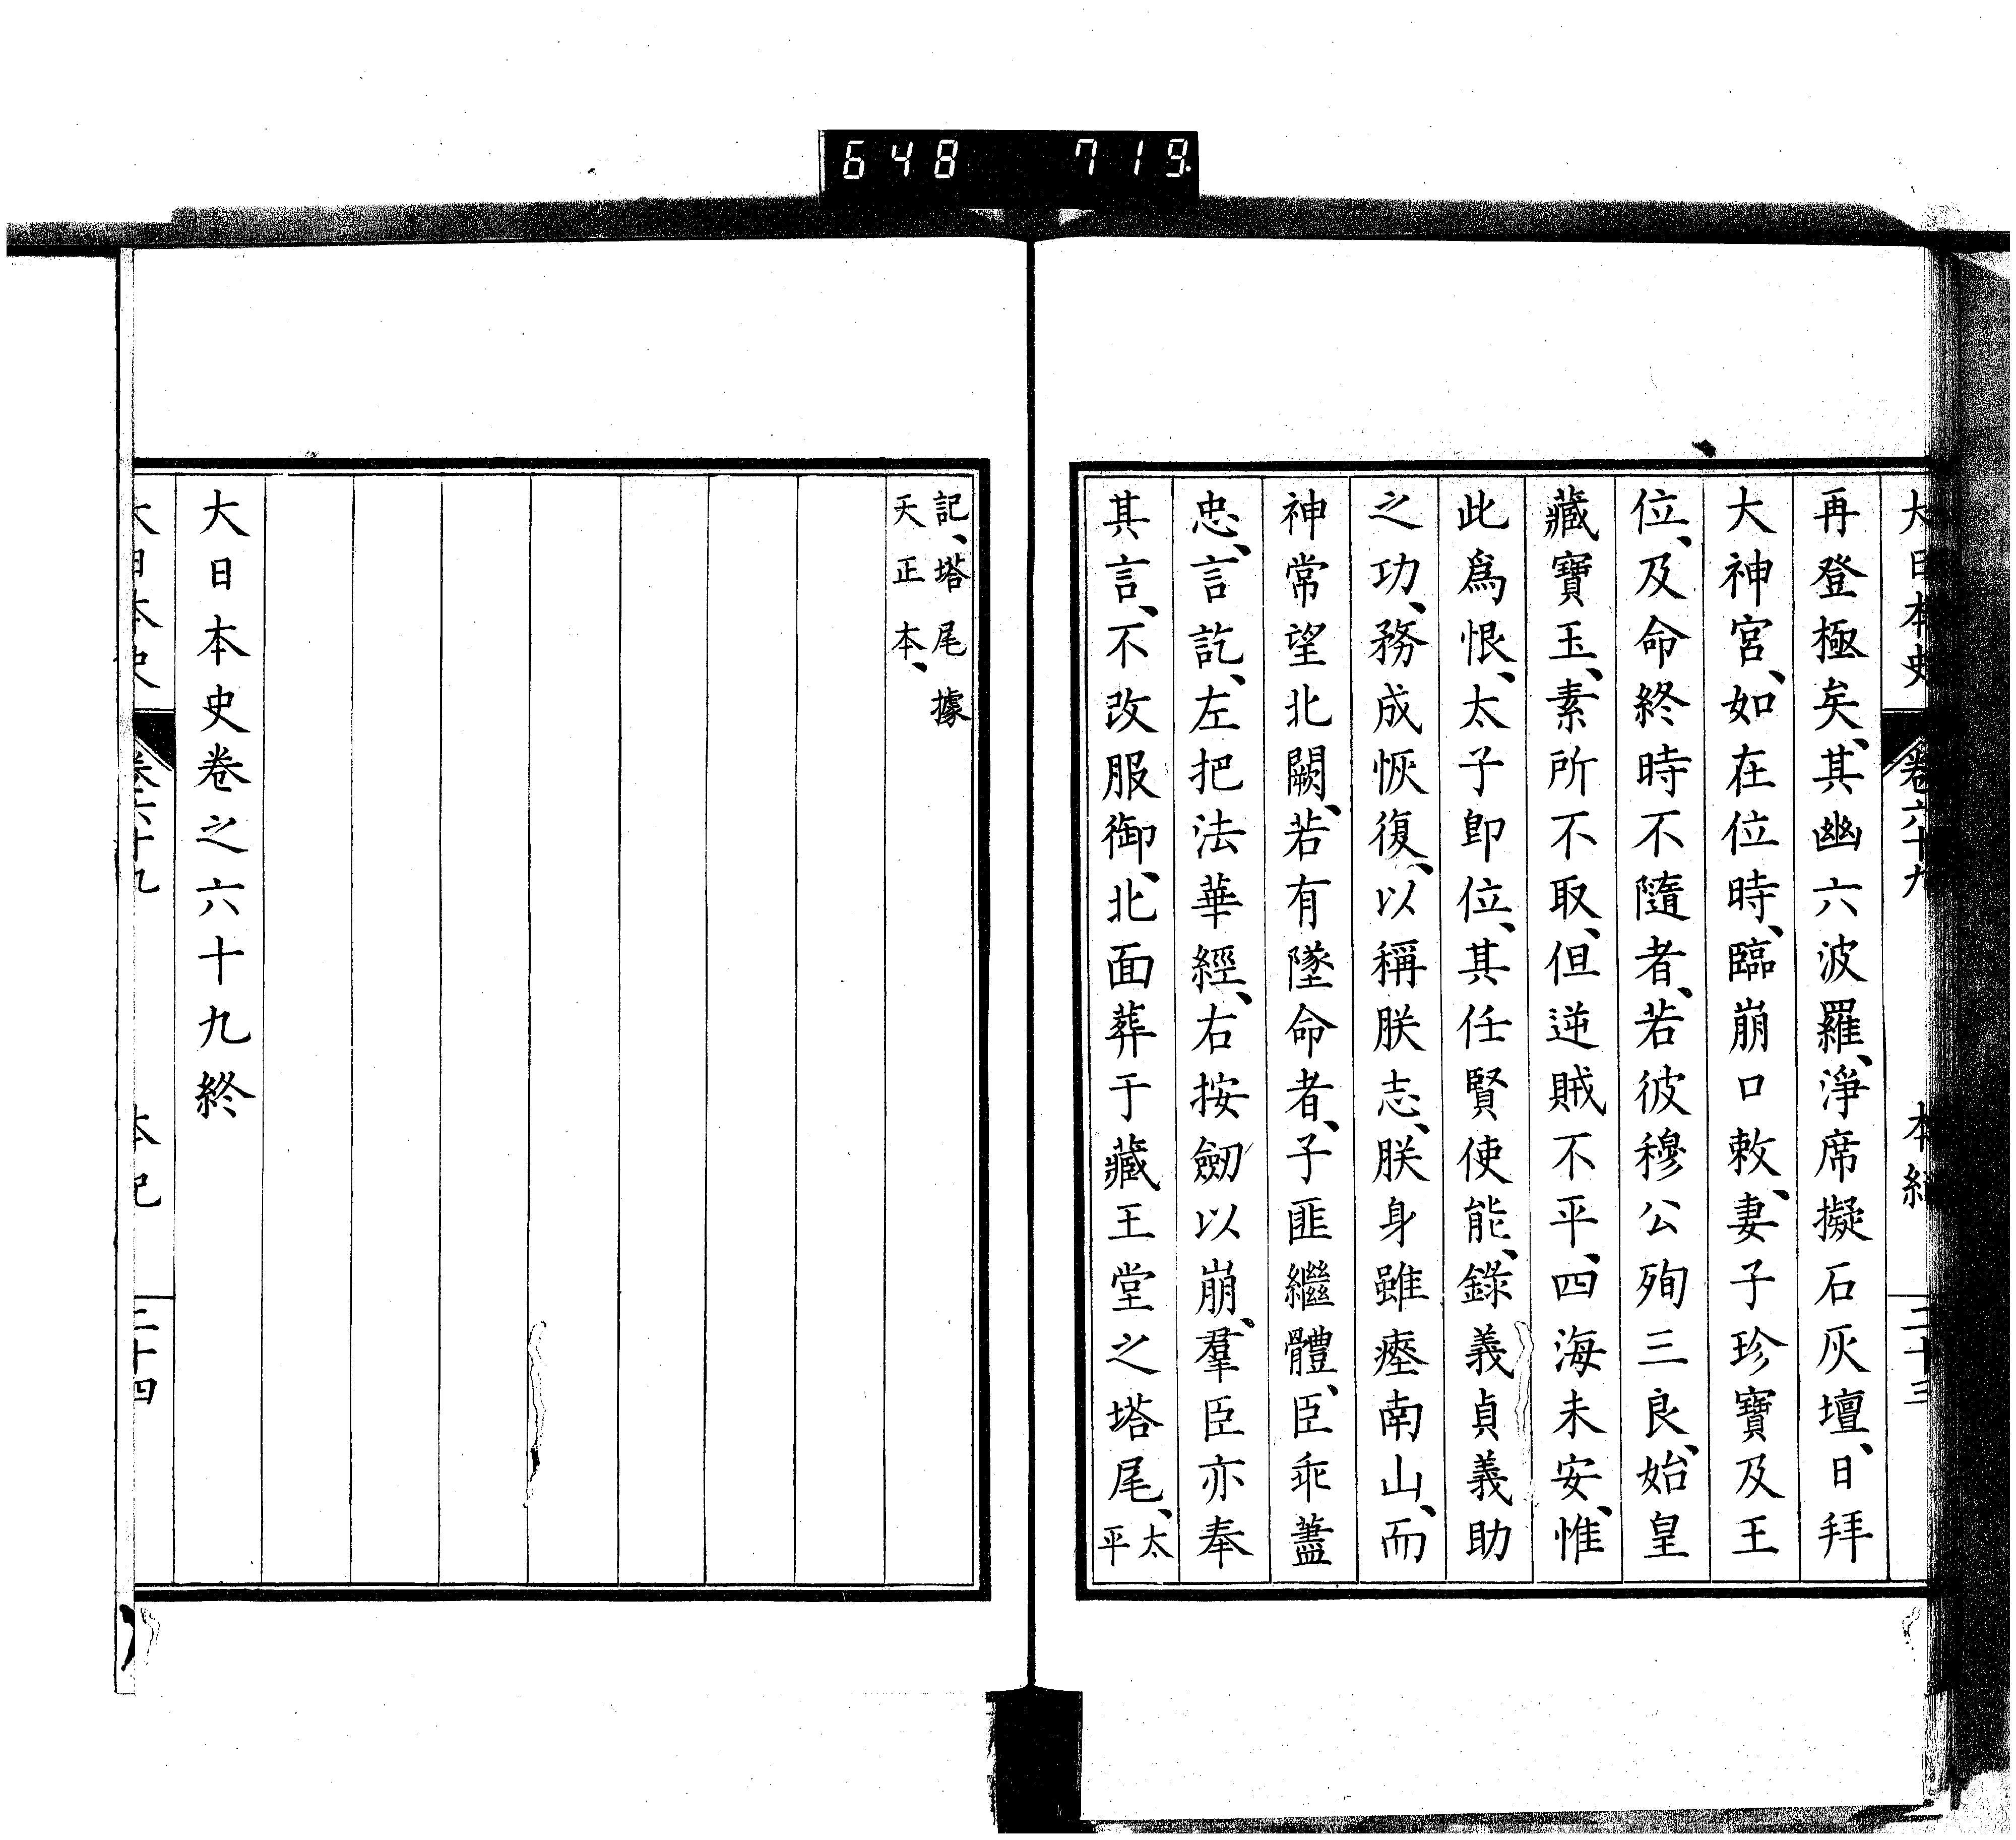 648 719
大日本史 卷六十九 本紀 二十三
再登極矣、其幽六波羅、淨席擬石灰壇、日拜
大神宮、如在位時、臨崩口敕、妻子珍寶及王
位、及命終時不隨者、若彼穆公殉三良、始皇
藏寶玉、素所不取、但逆賊不平、四海未安、惟
此爲恨、太子卽位、其任賢使能、錄義貞義助
之功、務成恢復、以稱朕志、朕身雖瘞南山、而
神常望北闕、若有墜命者、子匪繼體、臣乖藎
忠、言訖、左把法華經、右按劒以崩、羣臣亦奉
其言、不改服御、北面葬于藏王堂之塔尾、太
平
記、塔尾據
天正本、
大日本史卷之六十九終
大日本史 卷六十九 本紀 二十四